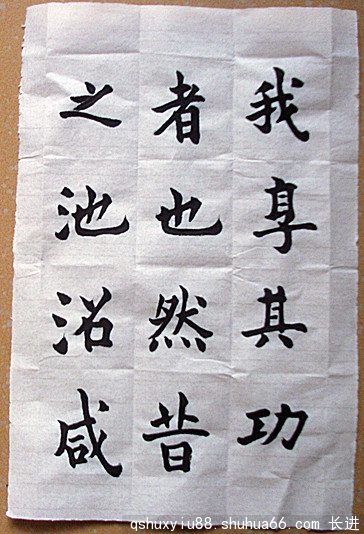 我享其功
者也然昔
之池沼咸
qshuxyiu88.shuhua66.com 长进